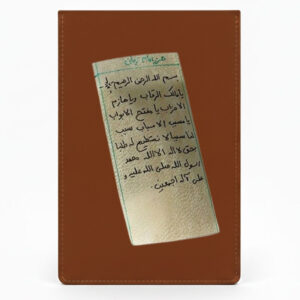 بسم الله الرحمن الرحيم
يا مالك الرقاب ويا هازم
الاحزاب يا مفتح الابواب
يا مسبب الاسباب سبب
لنا سببا لا نستطيع له طلبا
بحق لا اله الا الله محمد
رسول الله صلى الله عليه و
على آله اجمعين